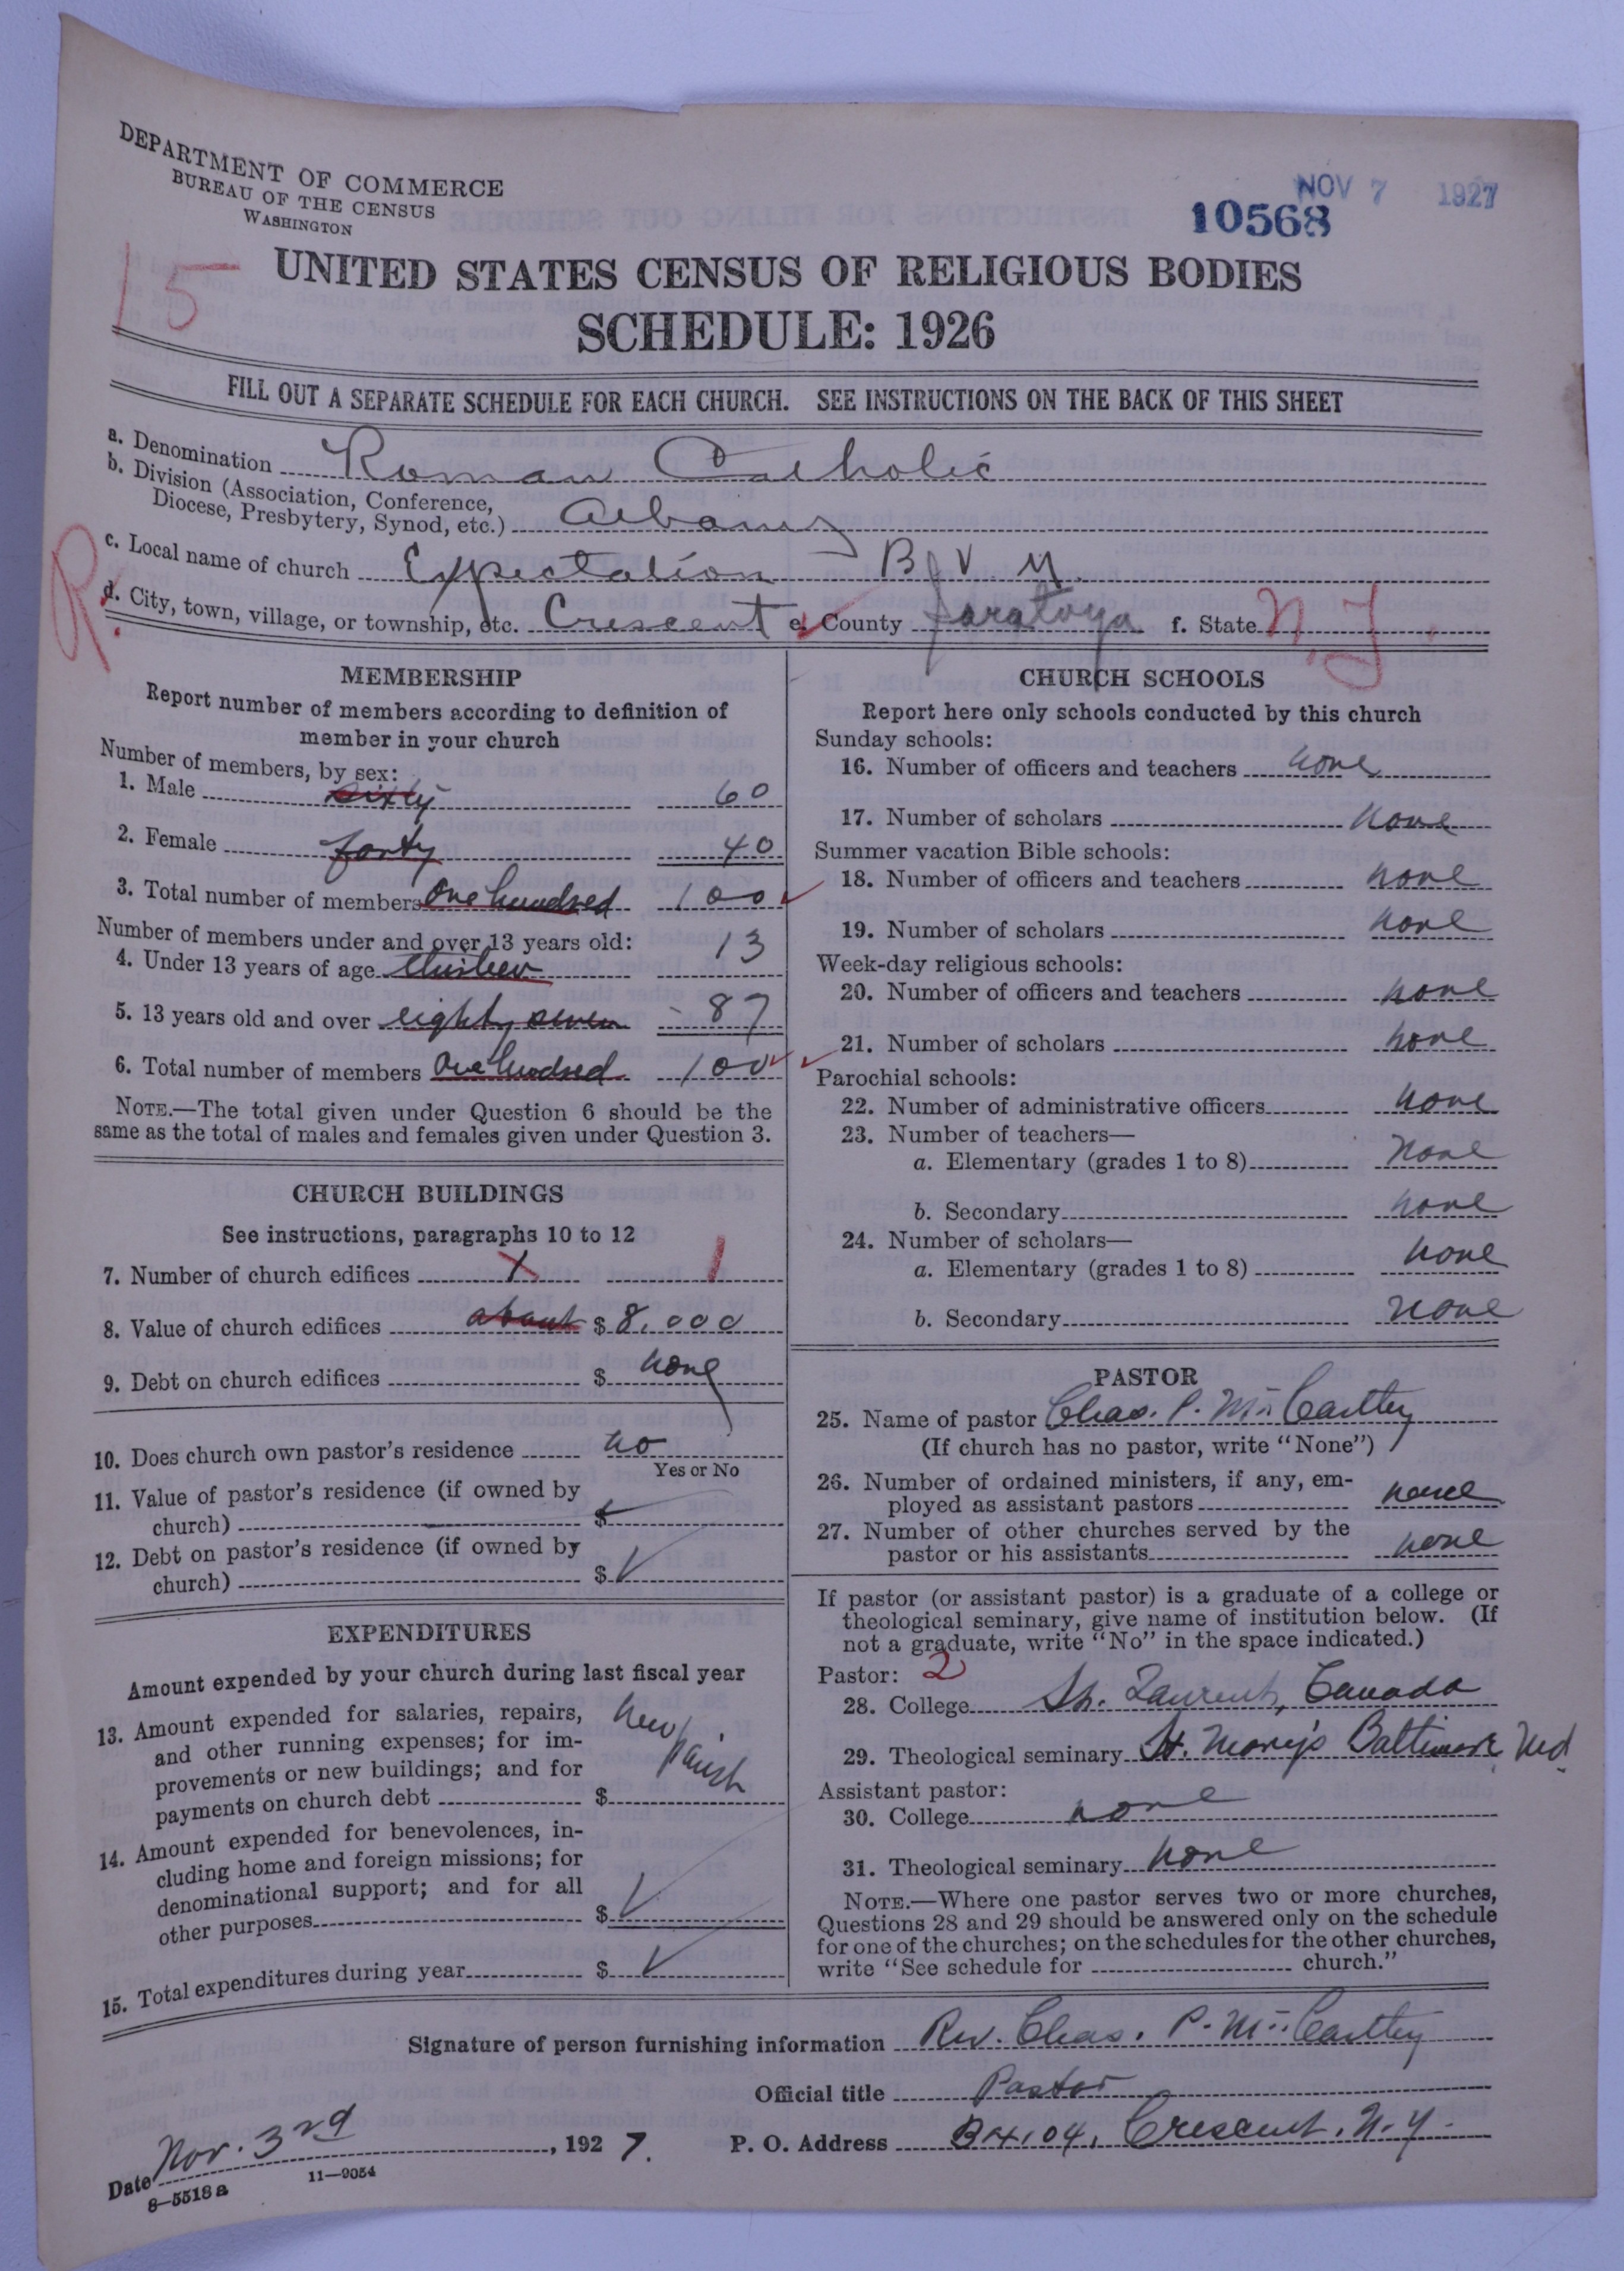 DEPARTMENT OF COMMERCE
BUREAU OF THE CENSUS
WASHINGTON
NOV 7 1927
10568
15
UNITED STATES CENSUS OF RELIGIOUS BODIES
SCHEDULE: 1926
FILL OUT A SEPARATE SCHEDULE FOR EACH CHURCH. SEE INSTRUCTIONS ON THE BACK OF THIS SHEET
a. Denomination Roman Catholic
b. Division (Association, Conference,
Diocese, Presbytery, Synod, etc.) Albany
c. Local name of church Expectation B V M.
R.
d. City, town, village, or township, etc. Crescent e. County Saratoga f. State N.Y
MEMBERSHIP
Report number of members according to definition of
member in your church
Number of members, by sex:
1. Male sixty 60
2. Female forty 40
3. Total number of members One hundred 100
Number of members under and over 13 years old:
4. Under 13 years of age thirteen 13
5. 13 years old and over eighty seven 87
6. Total number of members One hundred 100
NOTE.—The total given under Question 6 should be the
same as the total of males and females given under Question 3.
CHURCH BUILDINGS
See instructions, paragraphs 10 to 12
7. Number of church edifices 1 1
8. Value of church edifices about $ 8,000
9. Debt on church edifices $ none
10. Does church own pastor's residence no
Yes or No
11. Value of pastor's residence (if owned by
church) $
12. Debt on pastor's residence (if owned by
church) $
EXPENDITURES
Amount expended by your church during last fiscal year
13. Amount expended for salaries, repairs,
and other running expenses; for im-
provements or new buildings; and for
payments on church debt $ New parish
14. Amount expended for benevolences, in-
cluding home and foreign missions; for
denominational support; and for all
other purposes $
15. Total expenditures during year $
CHURCH SCHOOLS
Report here only schools conducted by this church
Sunday schools:
16. Number of officers and teachers none
17. Number of scholars none
Summer vacation Bible schools:
18. Number of officers and teachers none
19. Number of scholars none
Week-day religious schools:
20. Number of officers and teachers none
21. Number of scholars none
Parochial schools:
22. Number of administrative officers none
23. Number of teachers—
a. Elementary (grades 1 to 8) none
b. Secondary none
24. Number of scholars—
a. Elementary (grades 1 to 8) none
b. Secondary none
PASTOR
25. Name of pastor Chas. P. McCarthy
(If church has no pastor, write "None")
26. Number of ordained ministers, if any, em-
ployed as assistant pastors none
27. Number of other churches served by the
pastor or his assistants none
If pastor (or assistant pastor) is a graduate of a college or
theological seminary, give name of institution below. (If
not a graduate, write "No" in the space indicated.)
Pastor: 2
28. College St. Laurent, Canada
29. Theological seminary St. Mary's Baltimore, Md.
Assistant pastor:
30. College none
31. Theological seminary none
NOTE.—Where one pastor serves two or more churches,
Questions 28 and 29 should be answered only on the schedule
for one of the churches; on the schedules for the other churches,
write "See schedule for church."
Signature of person furnishing information Rev. Chas. P. McCarthy
Official title Pastor
Date Nov. 3rd, 1927. P. O. Address Crescent, N.Y.
8—5518 a 11—9054